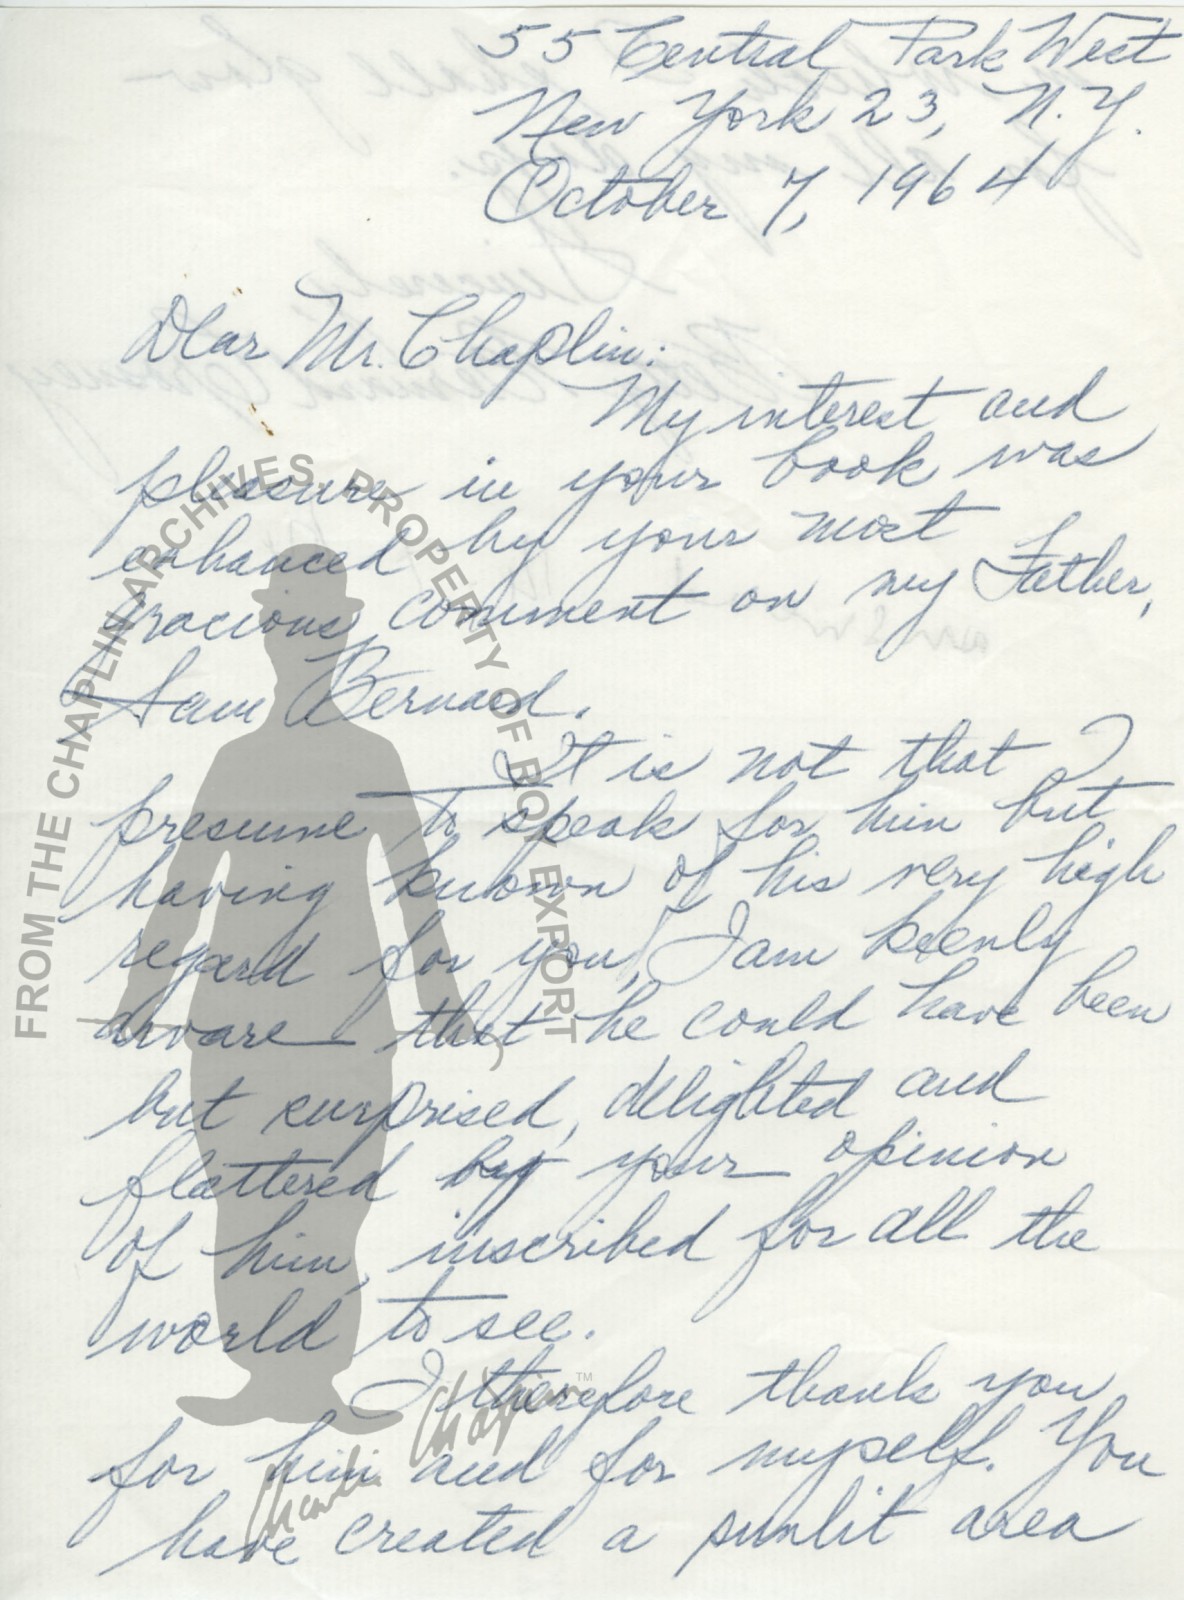 55 Central Park West
New York 23, N.Y.
October 7, 1964
Dear Mr. Chaplin:
My interest and
pleasure in your book was
enhanced by your most
gracious comment on my Father,
Sam Bernard.
It is not that I
presume to speak for him but
having known of his very high
regard for you, I am keenly
aware that he could have been
but surprised, delighted and
flattered by your opinion
of him, inscribed for all the
world to see.
I therefore thank you
for him and for myself. You
have created a sunlit area
FROM THE CHAPLIN ARCHIVES. PROPERTY OF ROY EXPORT
Charlie Chaplin TM